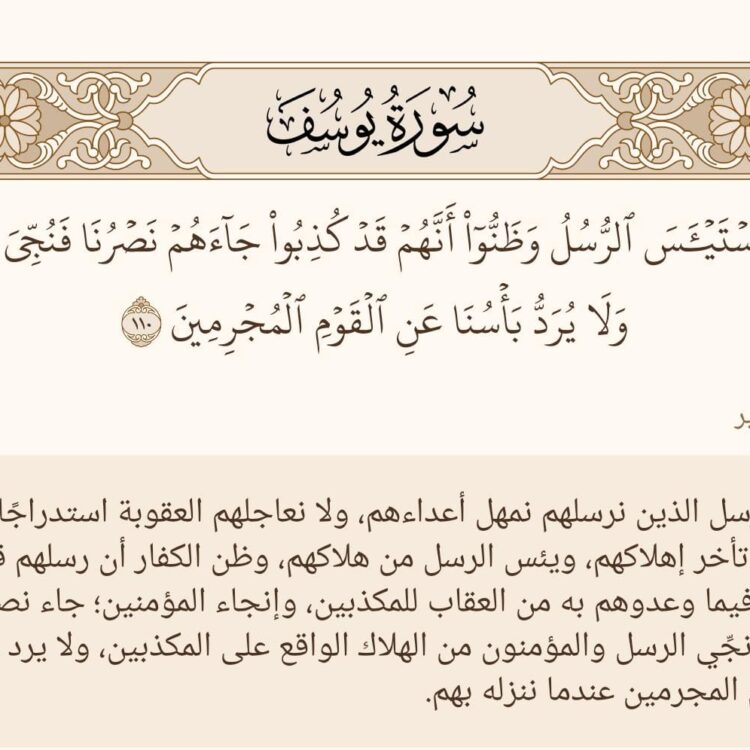 سُورَةُ يُوسُفَ
سْتَيْـَٔسَ ٱلرُّسُلُ وَظَنُّوٓا۟ أَنَّهُمْ قَدْ كُذِبُوا۟ جَآءَهُمْ نَصْرُنَا فَنُجِّىَ
وَلَا يُرَدُّ بَأْسُنَا عَنِ ٱلْقَوْمِ ٱلْمُجْرِمِينَ ١١٠
ير
سل الذين نرسلهم نمهل أعداءهم، ولا نعاجلهم العقوبة استدراجًا
تأخر إهلاكهم، ويئس الرسل من هلاكهم، وظن الكفار أن رسلهم ق
فيما وعدوهم به من العقاب للمكذبين، وإنجاء المؤمنين؛ جاء نص
نجِّي الرسل والمؤمنون من الهلاك الواقع على المكذبين، ولا يرد
المجرمين عندما ننزله بهم.